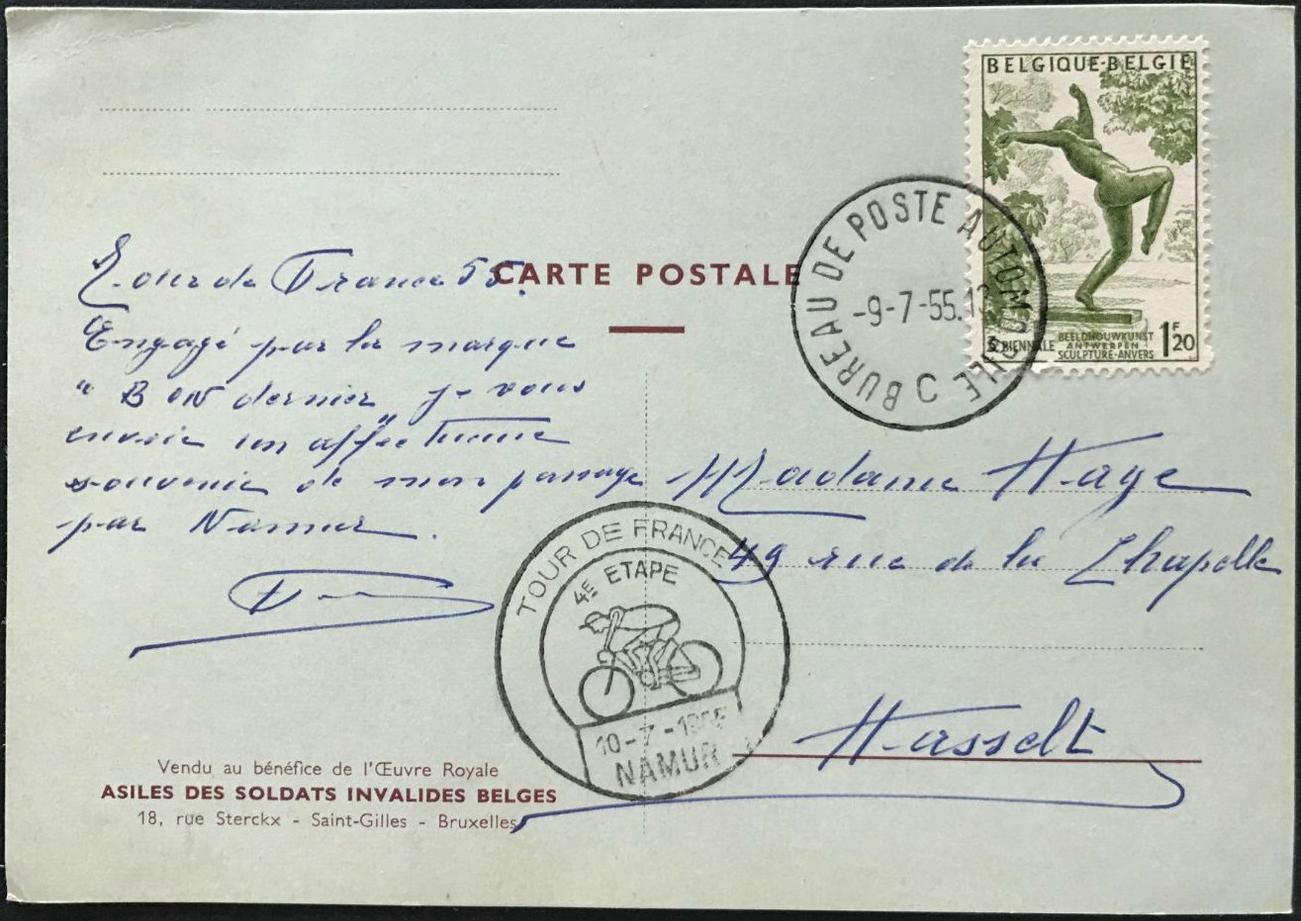 BELGIQUE-BELGIE
BIENNALE
BEELDHOUWKUNST
ANTWERPEN
SCULPTURE-ANVERS
1F20
BUREAU DE POSTE AUTOMOBILE
-9-7-55.13
C
CARTE POSTALE
Tour de France 55.
Engagé par la marque
"BON dernier" je vous
envoie un affectueux
souvenir de mon passage
par Namur.
Madame Haye
49 rue de la Chapelle
Hasselt
TOUR DE FRANCE
4E ETAPE
10-7-1955
NAMUR
Vendu au bénéfice de l'Œuvre Royale
ASILES DES SOLDATS INVALIDES BELGES
18, rue Sterckx - Saint-Gilles - Bruxelles